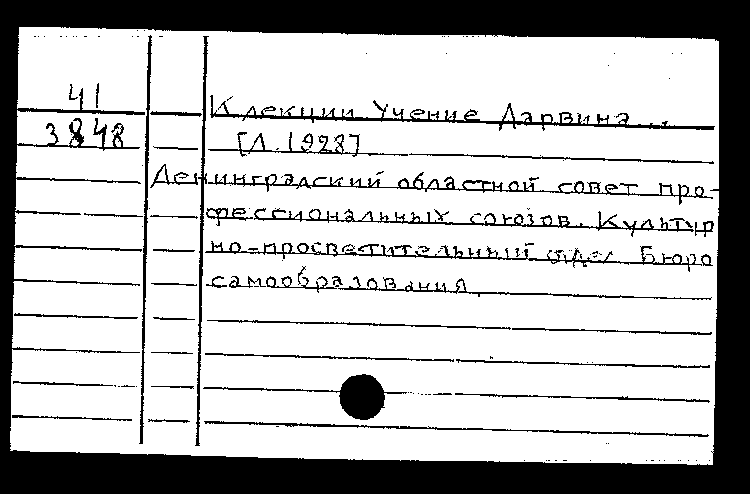 41
К лекции Учение Дарвина...
3848
[Л. 1928]
Ленинградский областной совет про-
фессиональных союзов. Культур
но-просветительный отдел Бюро
самообразования.